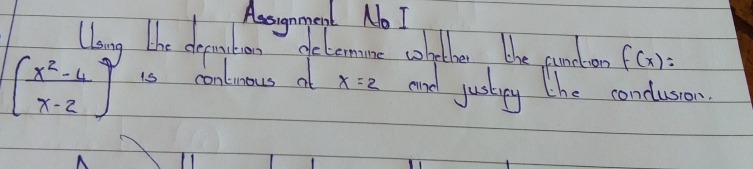 Assignment No I
Using the definition determine whether the function f(x):
[x² - 4
x - 2] is continous at x = 2 and justify the conclusion.